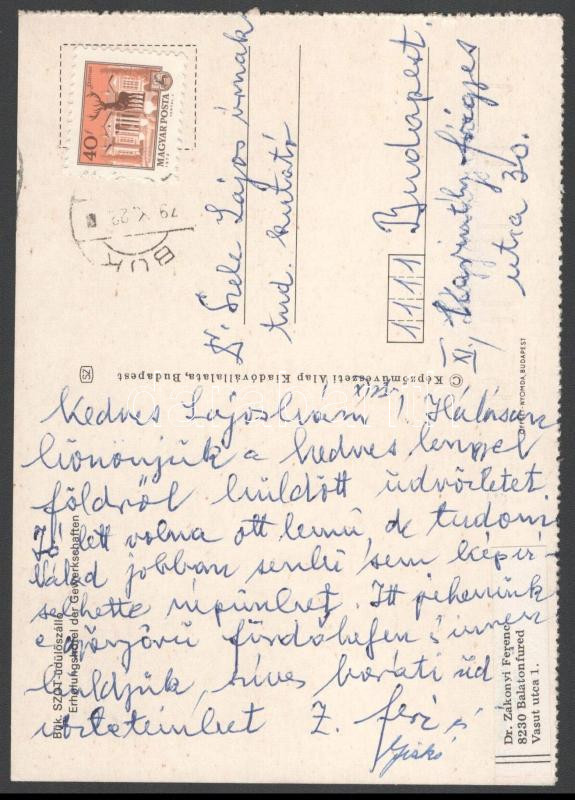 Kedves Lajoskám ! Hálásan
köszönjük a kedves lengyel
földről küldött üdvözletet
Jó lett volna ott lenni, de tudom
Nálad jobban senki sem képvi-
selhette népünket. Itt pihenünk
a gyönyörű fürdőhelyen s innen
küldjük szíves baráti üd
vözleteinket Z. Feri és
Dr. Szele Lajos úrnak
tud. kutató
Budapest
1111
XI, Karinthy Frigyes
utca 30.
40f
MAGYAR POSTA
79. X. 22
BÜK
SZ
© Képzőművészeti Alap Kiadóvállalata, Budapest
OFFSET-NYOMDA, BUDAPEST
Bük. SZOT-üdülőszálló
Erholungshotel der Gewerkschaften
Dr. Zákonyi Ferenc
8230 Balatonfüred
Vasut utca 1.